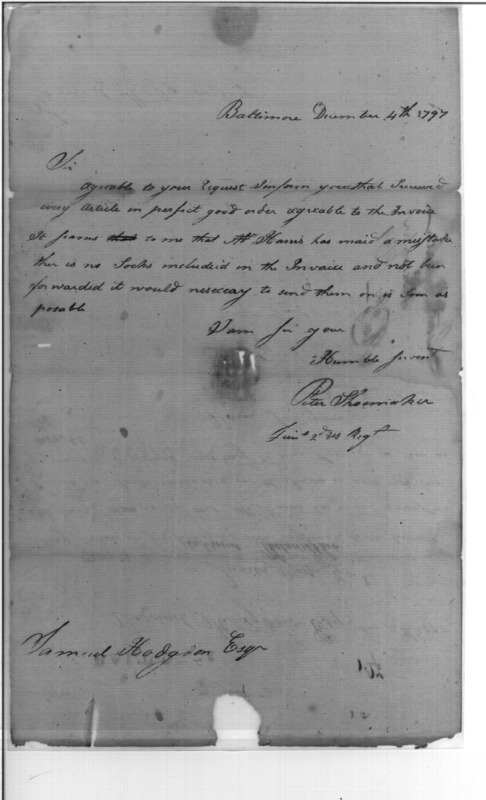 Baltimore December 4th 1797
Sir
Agreable to your Request I inform you that I receved
every article in perfect good order agreable to the Invoice
It seams to me that Mr Harris has maid a mistake
ther is no Socks included in the Invoice and not been
forwarded it would nesecary to send them on as soon as
posable
I am Sir your
Humble Servent
Peter Shoemaker
Lieut 2d Regt
Samuel Hodgdon Esqr